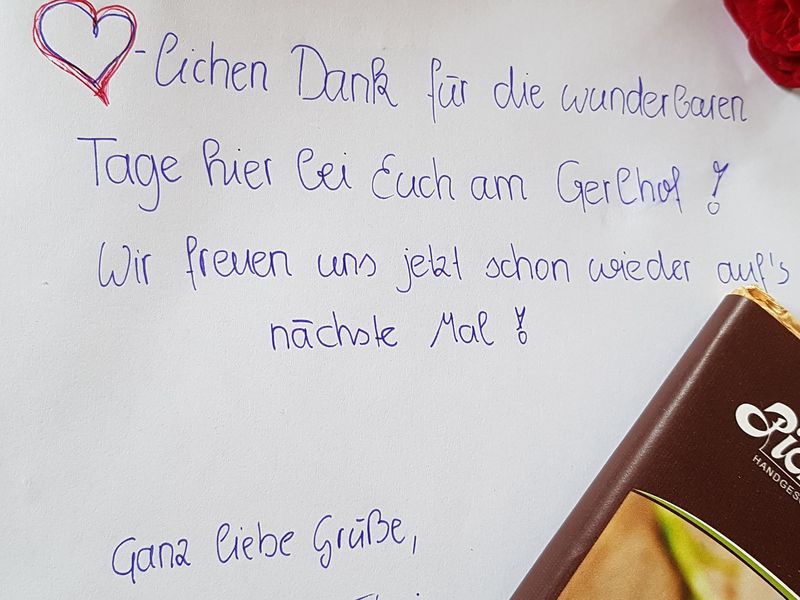 -lichen Dank für die wunderbaren
Tage hier bei Euch am Gerlhof!
Wir freuen uns jetzt schon wieder auf's
nächste Mal!
Ganz liebe Grüße,
HANDGES